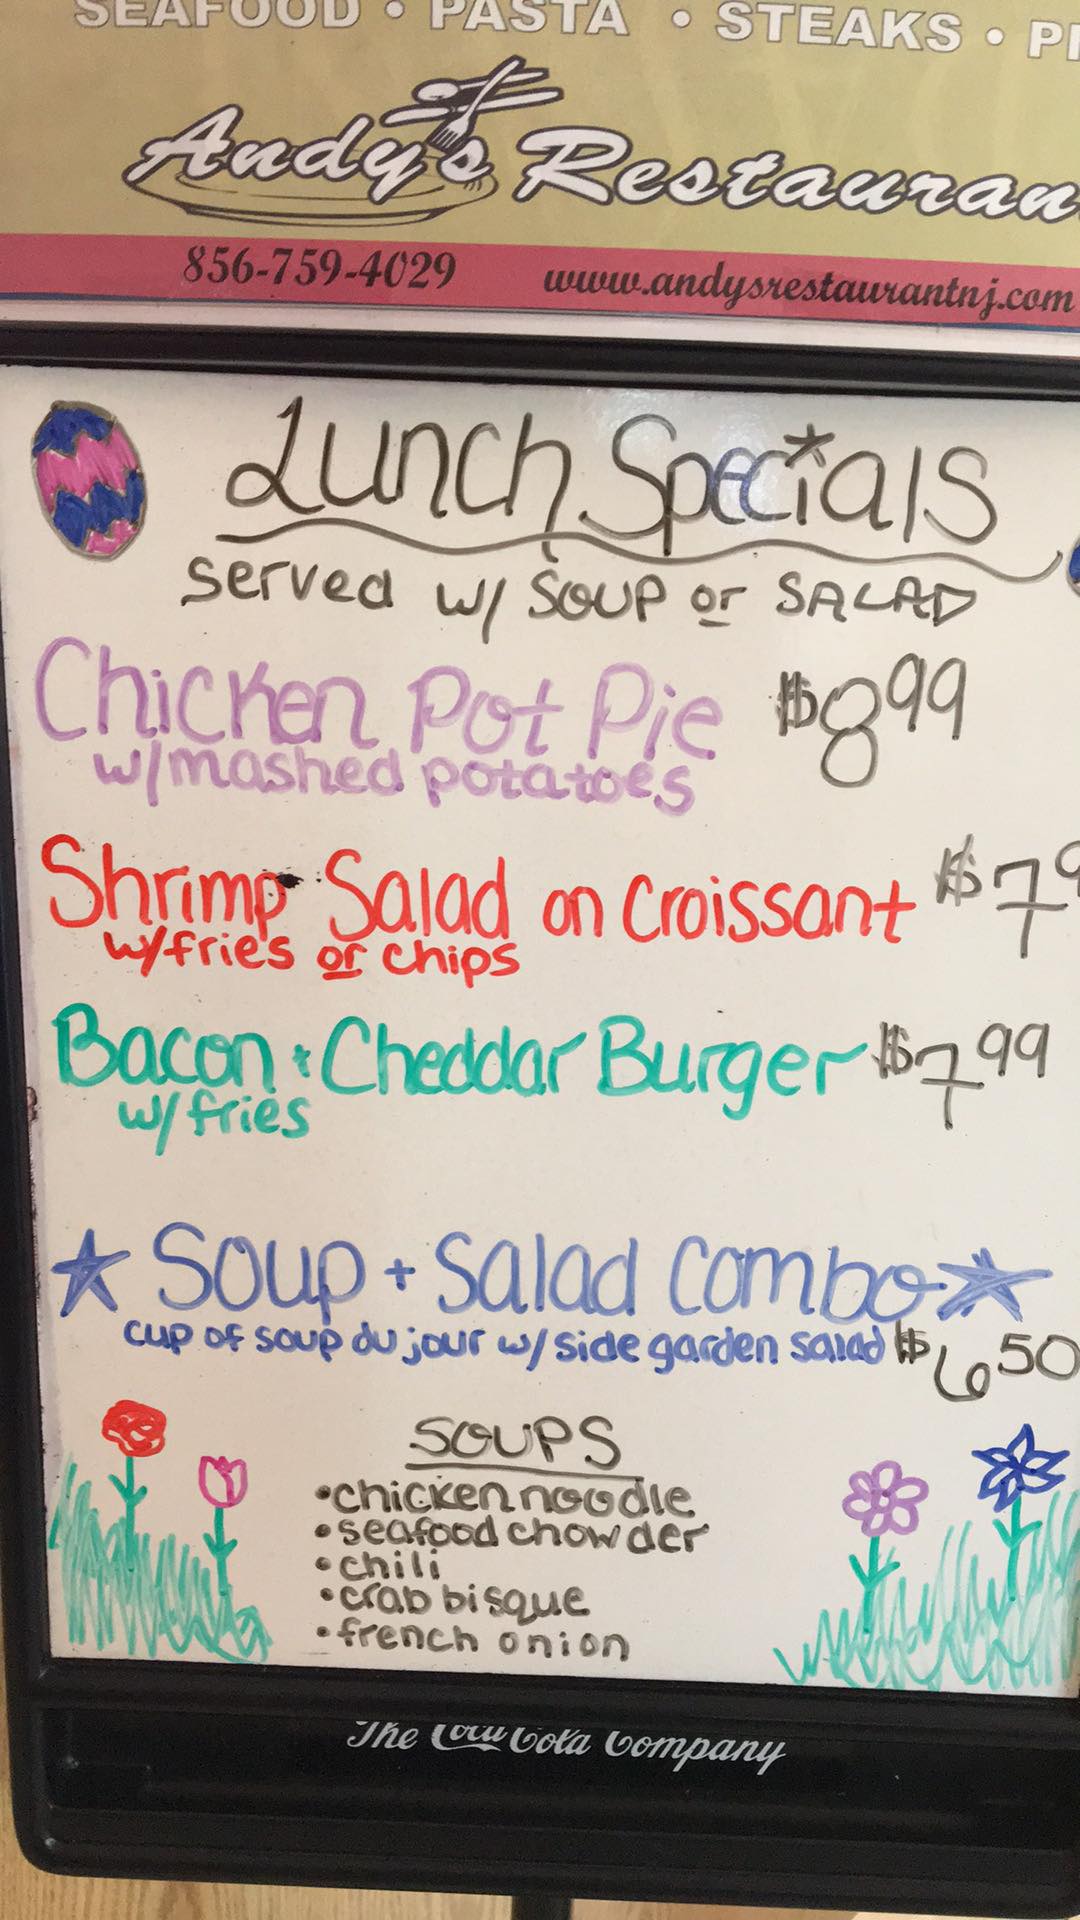 SEAFOOD • PASTA • STEAKS •
Andy's
856-759-4029 www.andysrestaurantnj.com
Lunch Specials
served w/ SOUP or SALAD
Chicken Pot Pie $8.99
w/mashed potatoes
Shrimp Salad on Croissant $7
w/fries or chips
Bacon + Cheddar Burger $7.99
w/ fries
Soup + Salad Combo
cup of soup du jour w/ side garden salad $6.50
SOUPS
•chicken noodle
•seafood chowder
•chili
•crab bisque
•french onion
The Coca Cola Company